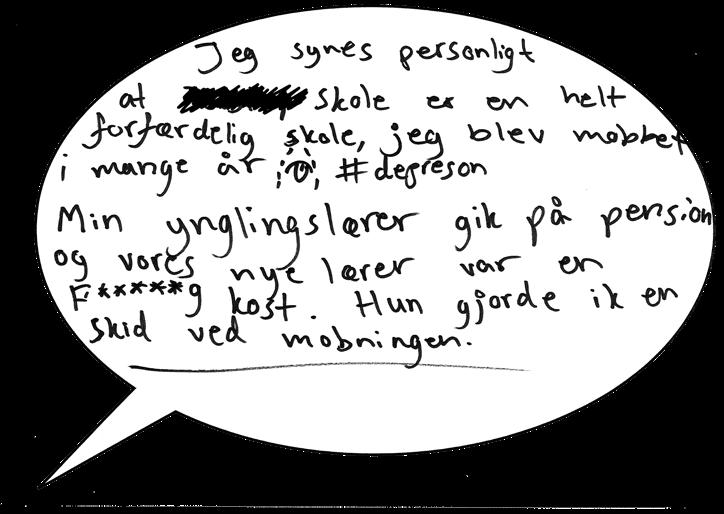 Jeg synes personligt
at skole er en helt
forfærdelig skole, jeg blev mobbet
i mange år #depreson
Min ynglingslærer gik på pension
og vores nye lærer var en
F*****g kost. Hun gjorde ik en
skid ved mobningen.